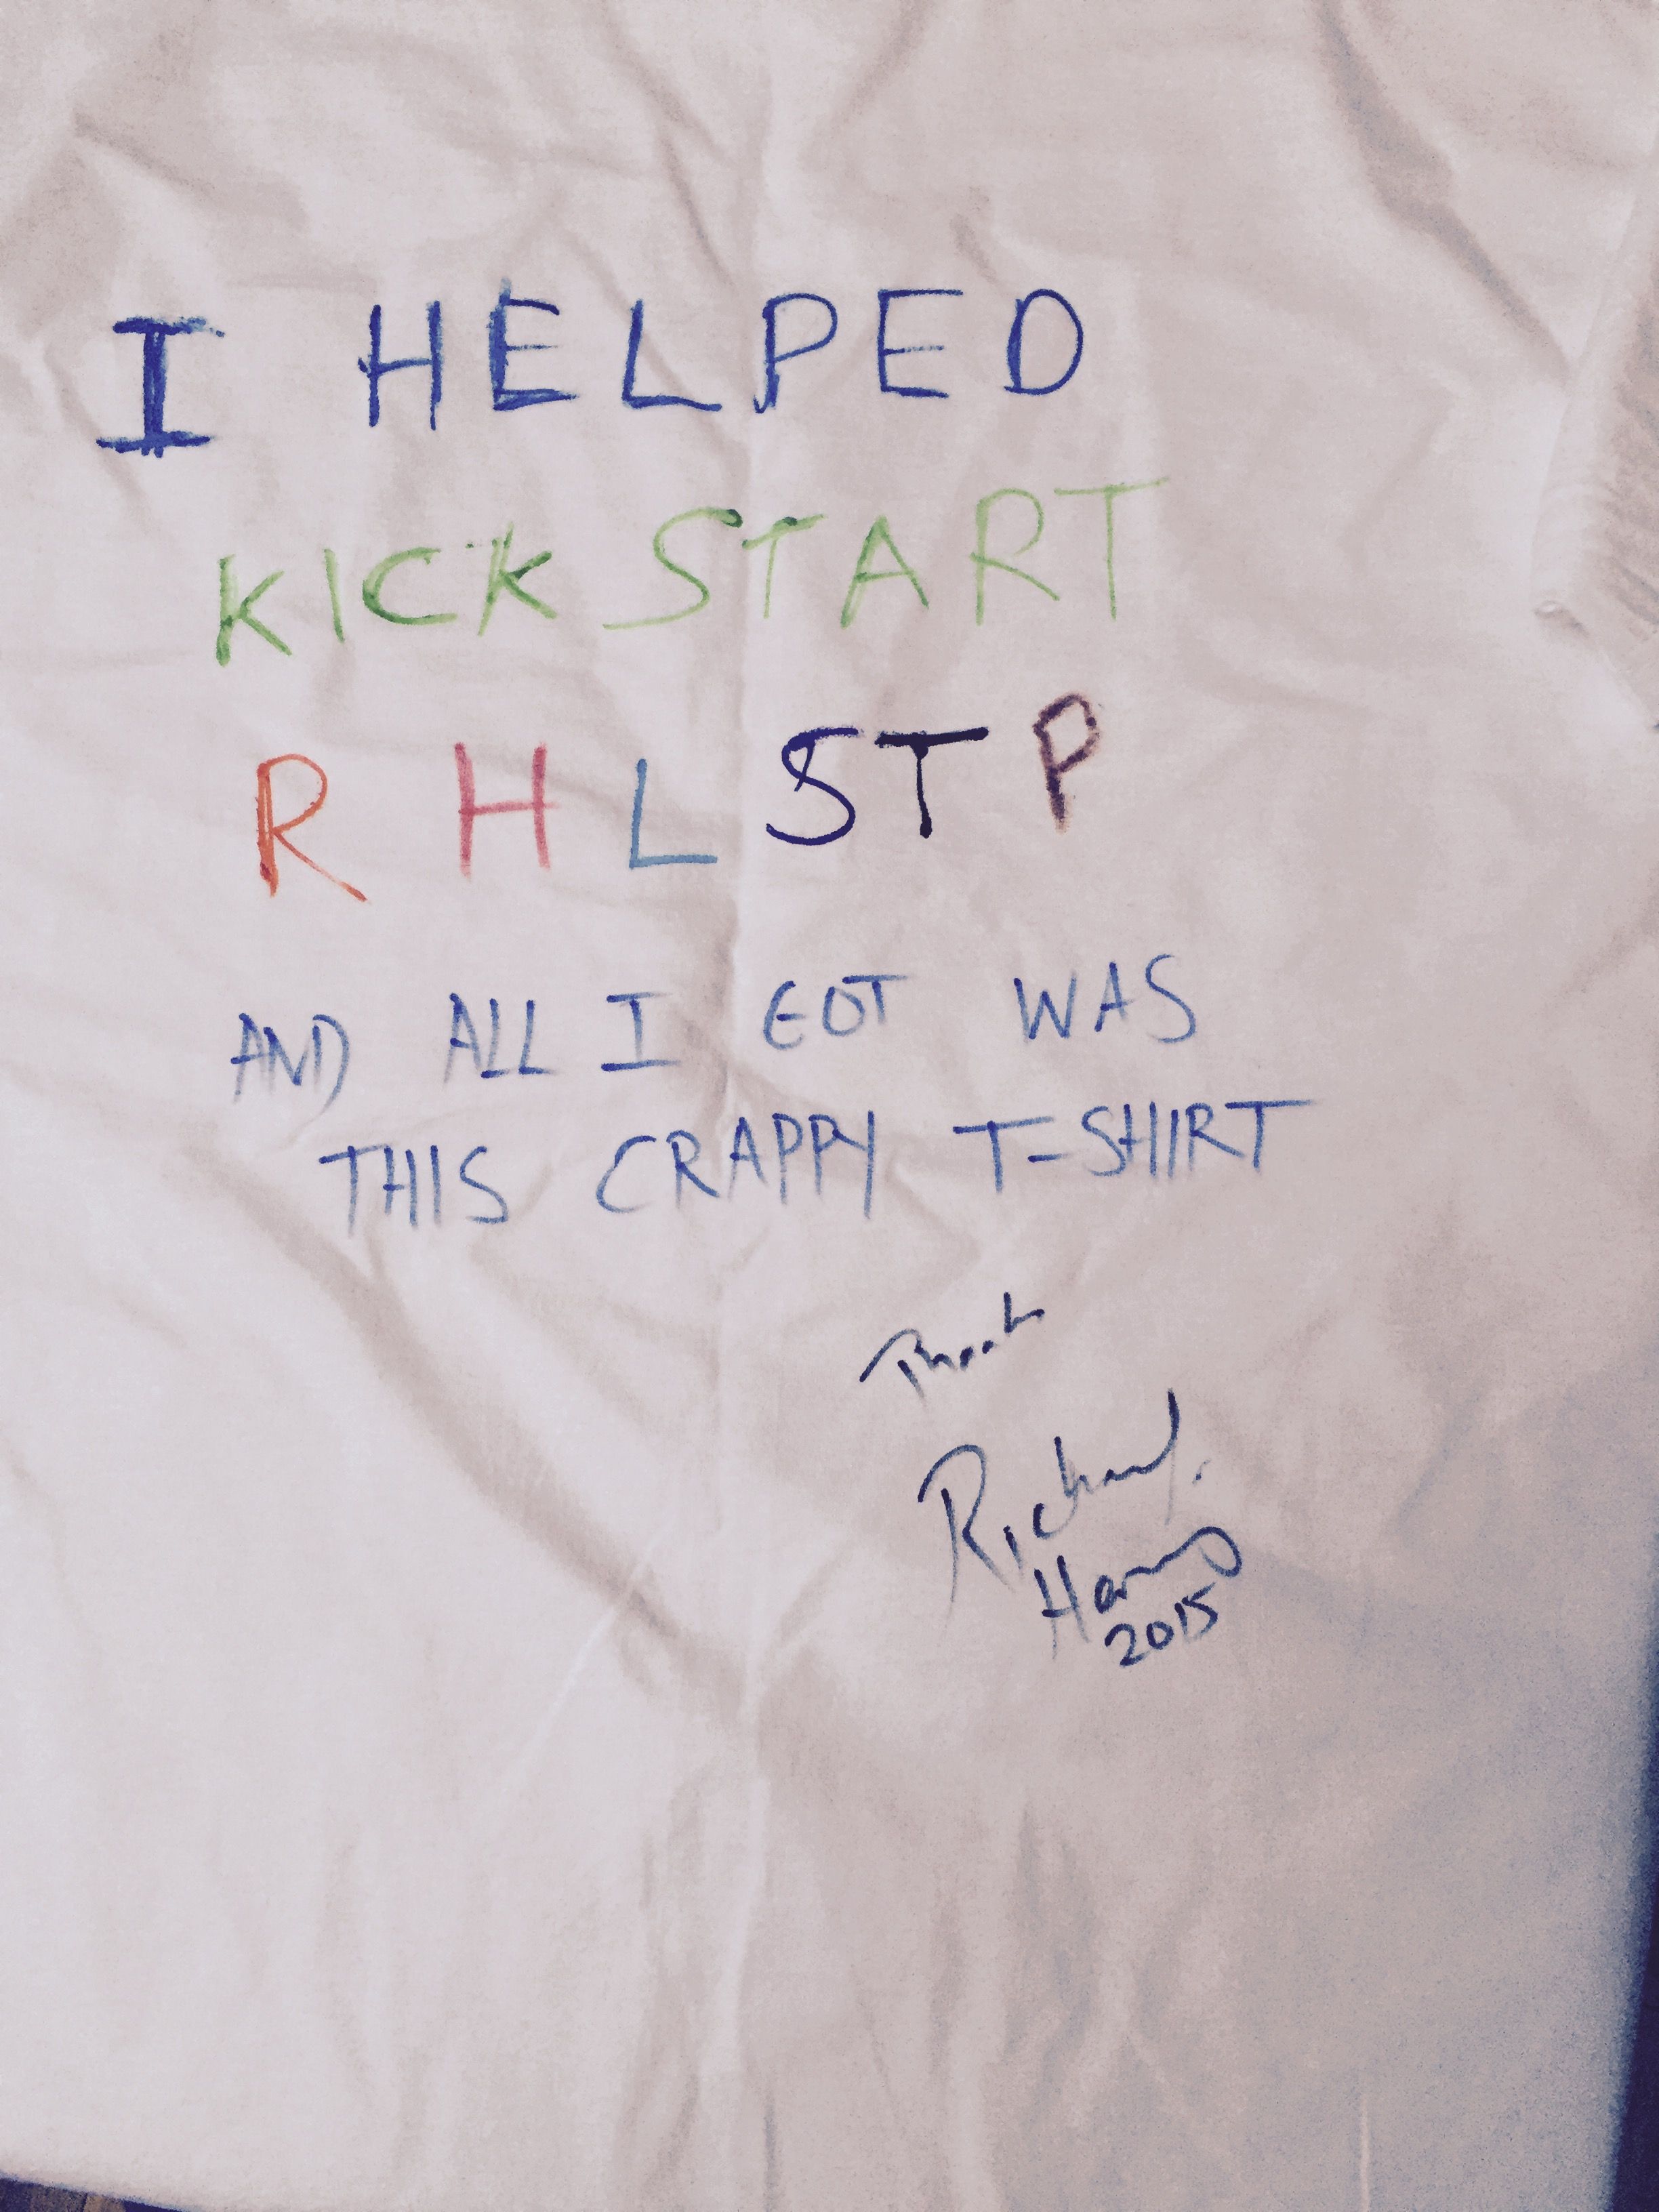 I HELPED
KICK START
RHLSTP
AND ALL I GOT WAS
THIS CRAPPY T-SHIRT
Thanks
Richard
2015